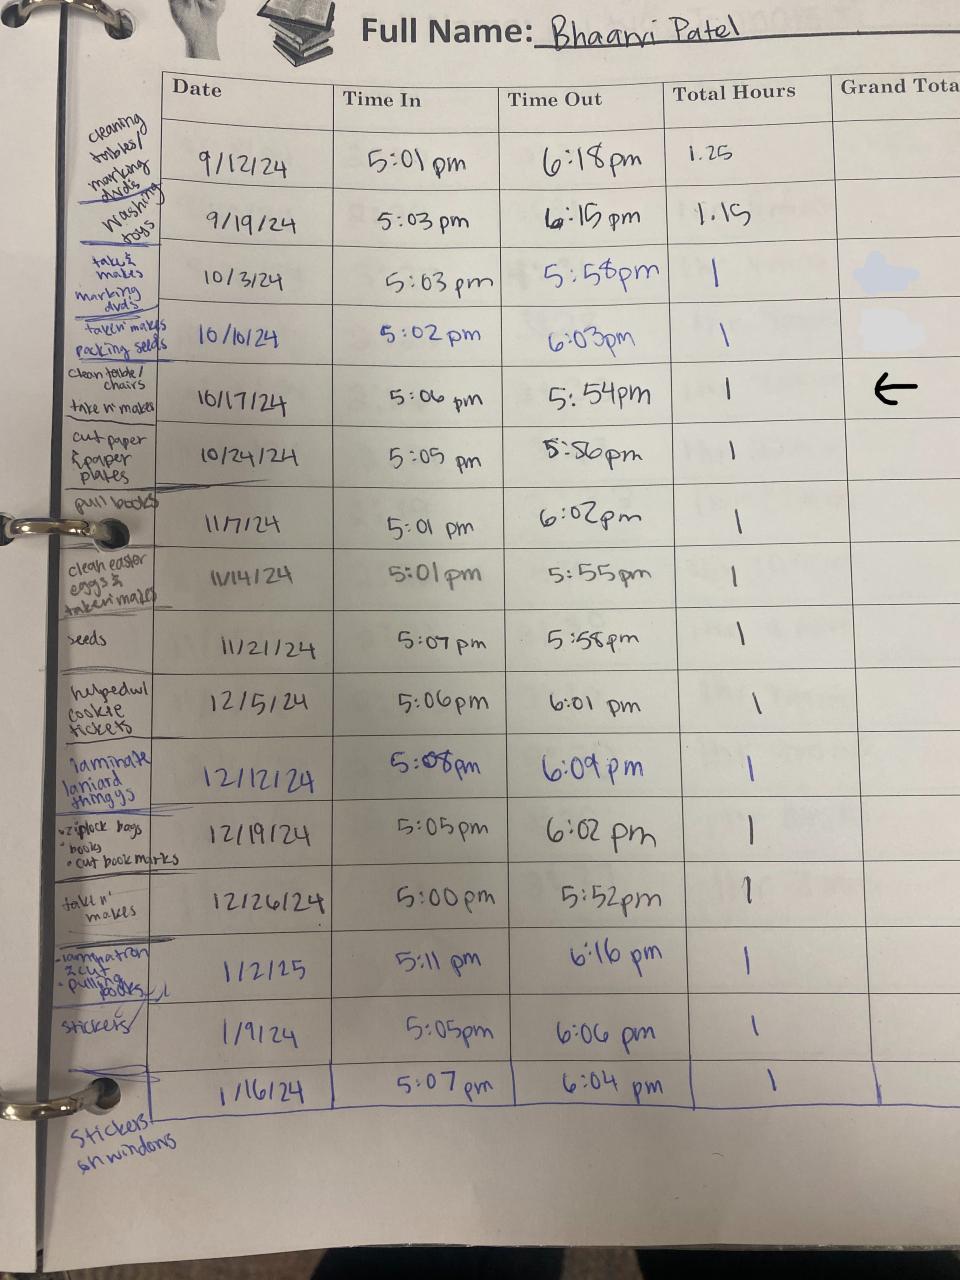 Full Name: Bhaanvi Patel
Date Time In Time Out Total Hours Grand Tota
cleaning
tables/
marking
dvds
9/12/24 5:01 pm 6:18pm 1.25
washing
toys
9/19/24 5:03 pm 6:15 pm 1.15
take &
makes
marking
dvds
10/3/24 5:03 pm 5:58pm 1
take n' makes
packing seeds
10/10/24 5:02 pm 6:03pm 1
clean table/
chairs
take n' makes
10/17/24 5:06 pm 5:54pm 1 ←
cut paper
& paper
plates
10/24/24 5:05 pm 5:56pm 1
pull books
11/7/24 5:01 pm 6:02pm 1
clean easter
eggs &
take n' makes
11/14/24 5:01pm 5:55pm 1
seeds
11/21/24 5:07 pm 5:58pm 1
helped w/
cookie
tickets
12/5/24 5:06pm 6:01 pm 1
laminate
laniard
thinggs
12/12/24 5:08pm 6:09 pm 1
• ziplock bags
• books
• cut book marks
12/19/24 5:05pm 6:02 pm 1
take n'
makes
12/26/24 5:00pm 5:52pm 1
& cut
• pulling
books
1/2/25 5:11 pm 6:16 pm 1
stickers
1/9/24 5:05pm 6:06 pm 1
1/16/24 5:07 pm 6:04 pm 1
stickers
on windows